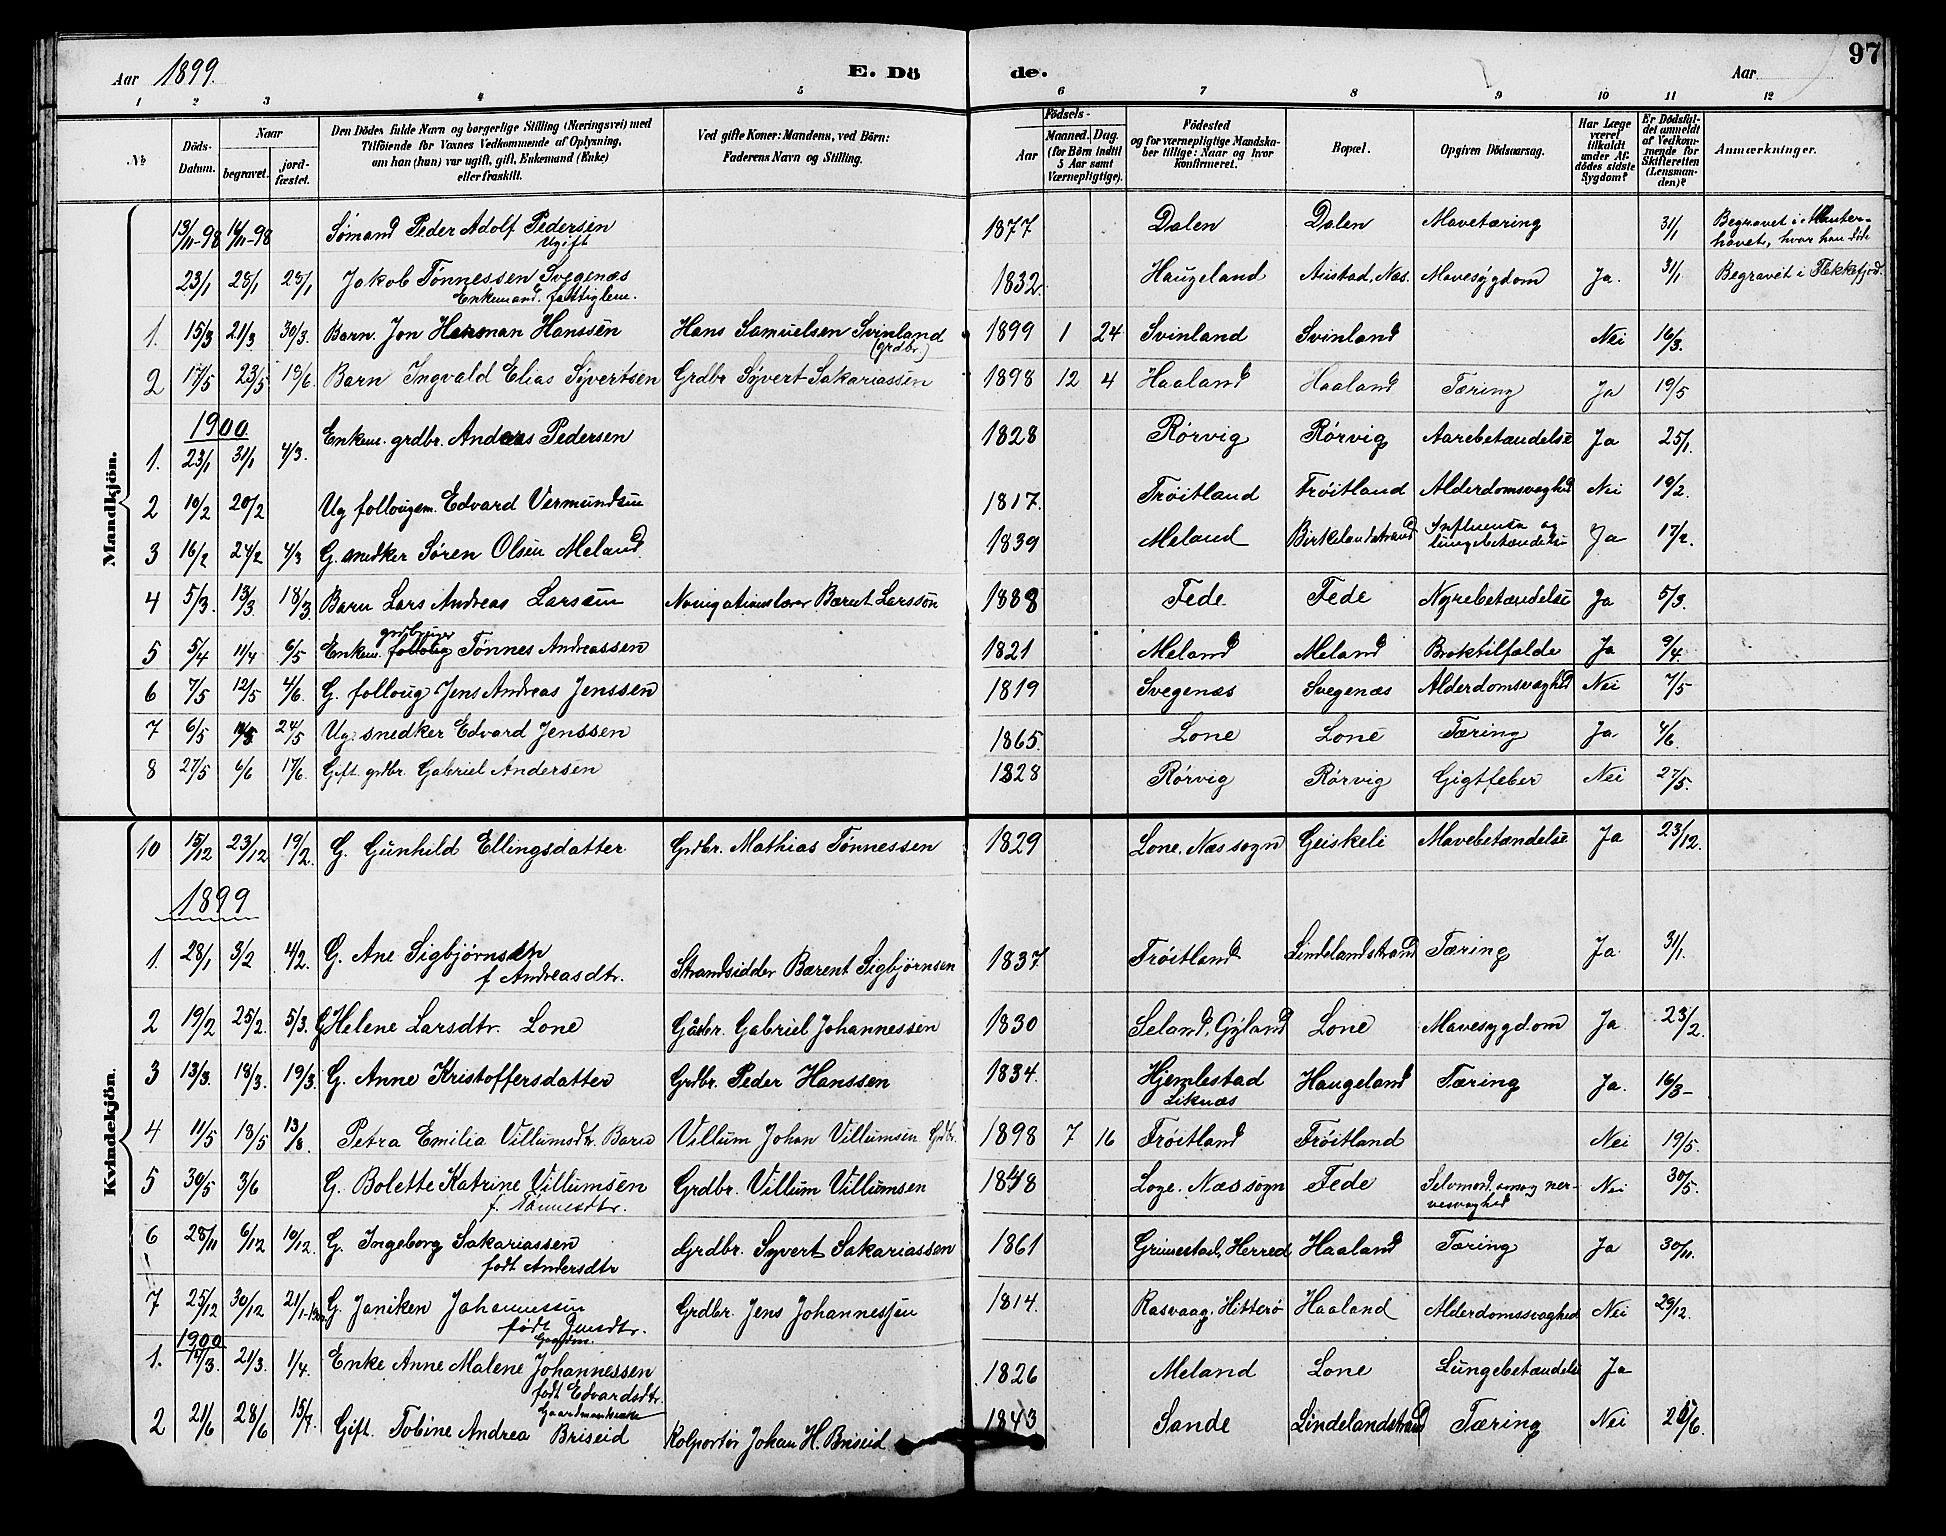 Aar 1899. E. Dö de. Aar 97
1 2 3 4 5 6 7 8 9 10 11 12
№ Döds-Datum. Naar begravet. jordfæstet. Den Dödes fulde Navn og borgerlige Stilling (Næringsvei) med Tilföiende for Voxnes Vedkommende af Oplysning, om han (hun) var ugift, gift, Enkemand (Enke) eller fraskilt. Ved gifte Koner: Mandens, ved Börn: Faderens Navn og Stilling. Födsels- Aar Maaned. Dag. (for Börn indtil 5 Aar samt Værnepligtige). Födested og for værnepligtige Mandskaber tillige: Naar og hvor konfirmeret. Bopæl. Opgiven Dödsaarsag. Har Læge været tilkaldt under Afdödes sidste Sygdom? Er Dödsfaldet anmeldt af Vedkommende for Skifteretten (Lensmanden)? Anmærkninger.
Mandkjön.
13/11-98 14/11-98 Sömand Peder Adolf Pedersen Ugift 1877 Dalen Dalen Mavetæring 31/1 Begravet i havet, hvor han döde
23/1 28/1 29/1 Jakob Tönnessen Svegenæs Enkemand. fattiglem. 1832. Haugeland Austad, Næs. Mavesygdom Ja. 31/1 Begravet i Flekkefjord.
1. 15/3 21/3 30/3. Barn. Jon Herman Hanssen Hans Samuelsen Svinland (grdbr) 1899 1 24 Svinland Svinland Nei 16/3.
2 17/5 23/5 19/6. Barn Ingvald Elias Syvertsen Grdbr Syvert Sakariassen 1898 12 4 Haaland Haaland Tæring Ja 19/5
1900
1. 23/1 31/1 4/3. Enkem. grdbr. Anders Pedersen 1828 Rörvig Rörvig Aarebetændelse Ja 25/1.
2 10/2 20/2 Ug follougsm. Edvard Vermundsen 1817. Tröitland Tröitland Alderdomsvaghed Nei 19/2.
3 16/2 24/2 4/3 G. snedker Sören Olsen Meland 1839 Meland Birkelandstrand Influensa og lungebetændelse Ja 17/2.
4 5/3. 13/3 18/3. Barn Lars Andreas Larsen Navigationslærer Bærnt Larsson 1888 Fede. Fede Nyrebetændelse Ja 5/3.
5 5/4 11/4 6/5 Enkem. grdbruger Tönnes Andreassen 1821 Meland Meland Broktilfælde Ja 9/4.
6 7/5 12/5 4/6. G. folloug Jens Andreas Jenssen 1819 Svegenæs Svegenæs Alderdomsvaghed Nei 7/5
7 6/5 24/5 Ug. snedker Edvard Jenssen 1865. Lone Lone Tæring Ja 4/6.
8 27/5 6/6 17/6. Gift grdbr. Gabriel Andersen 1828 Rörvig Rörvig Gigtfeber Nei 27/5.
Kvindekjön.
10 15/12 23/12 19/2. G. Gunhild Ellingsdatter Grdbr. Mathias Tönnessen 1829 Lone, Næs sogn Geiskeli Mavebetændelse Ja 23/12.
1899
1. 28/1 3/2 4/2. G. Ane Sigbjörnsen f Andreasdtr. Strandsidder Bærent Sigbjörnsen 1837 Tröitland Lindelandstrand Tæring Ja 31/1.
2 19/2 25/2. 5/3. G Helene Larsdtr. Lone Gaardbr. Gabriel Johannessen 1830 Seland, Gyland Lone Mavesygdom Ja 23/2.
3 13/3. 18/3. 19/3. G. Anne Kristoffersdatter Grdbr. Peder Hanssen 1834. Hjemlestad Liknæs Haugeland Tæring Ja. 16/3-
4 11/5 18/5 13/8. Petra Emilia Villumsdtr. Barn Villum Johan Villumsen Grdbr. 1898 7 16 Tröitland Tröitland Nei 19/5.
5 30/5 3/6 G. Bolette Katrine Villumsen f. Tönnesdtr. Grdbr. Villum Villumsen 1848 Loge. Næs sogn Fede Selvmord, nervesvaghed Nei 30/5.
6 28/11 6/12 10/12. G. Ingeborg Sakariassen födt Andersdtr Grdbr. Syvert Sakariassen 1861 Grimestad, Herred Haaland Tæring Ja 30/11.
7 25/12 30/12 21/1-1900 G. Janiken Johannessen födt Jensdtr. Grdbr. Jens Johannessen 1814. Rasvaag, Hitterö Haaland Alderdomssvaghed Nei 29/12.
1900
1. 12/3. 21/3. 1/4. Enke Anne Malene Johannessen födt Edvardsdtr. 1826 Meland Lone Lungebetændelse Ja
2 21/6 28/6 15/7. Gift. Tobine Andrea Briseid Kolportör Johan H. Briseid 1843 Sande Lindelandstrand Tæring Nei 25/6.